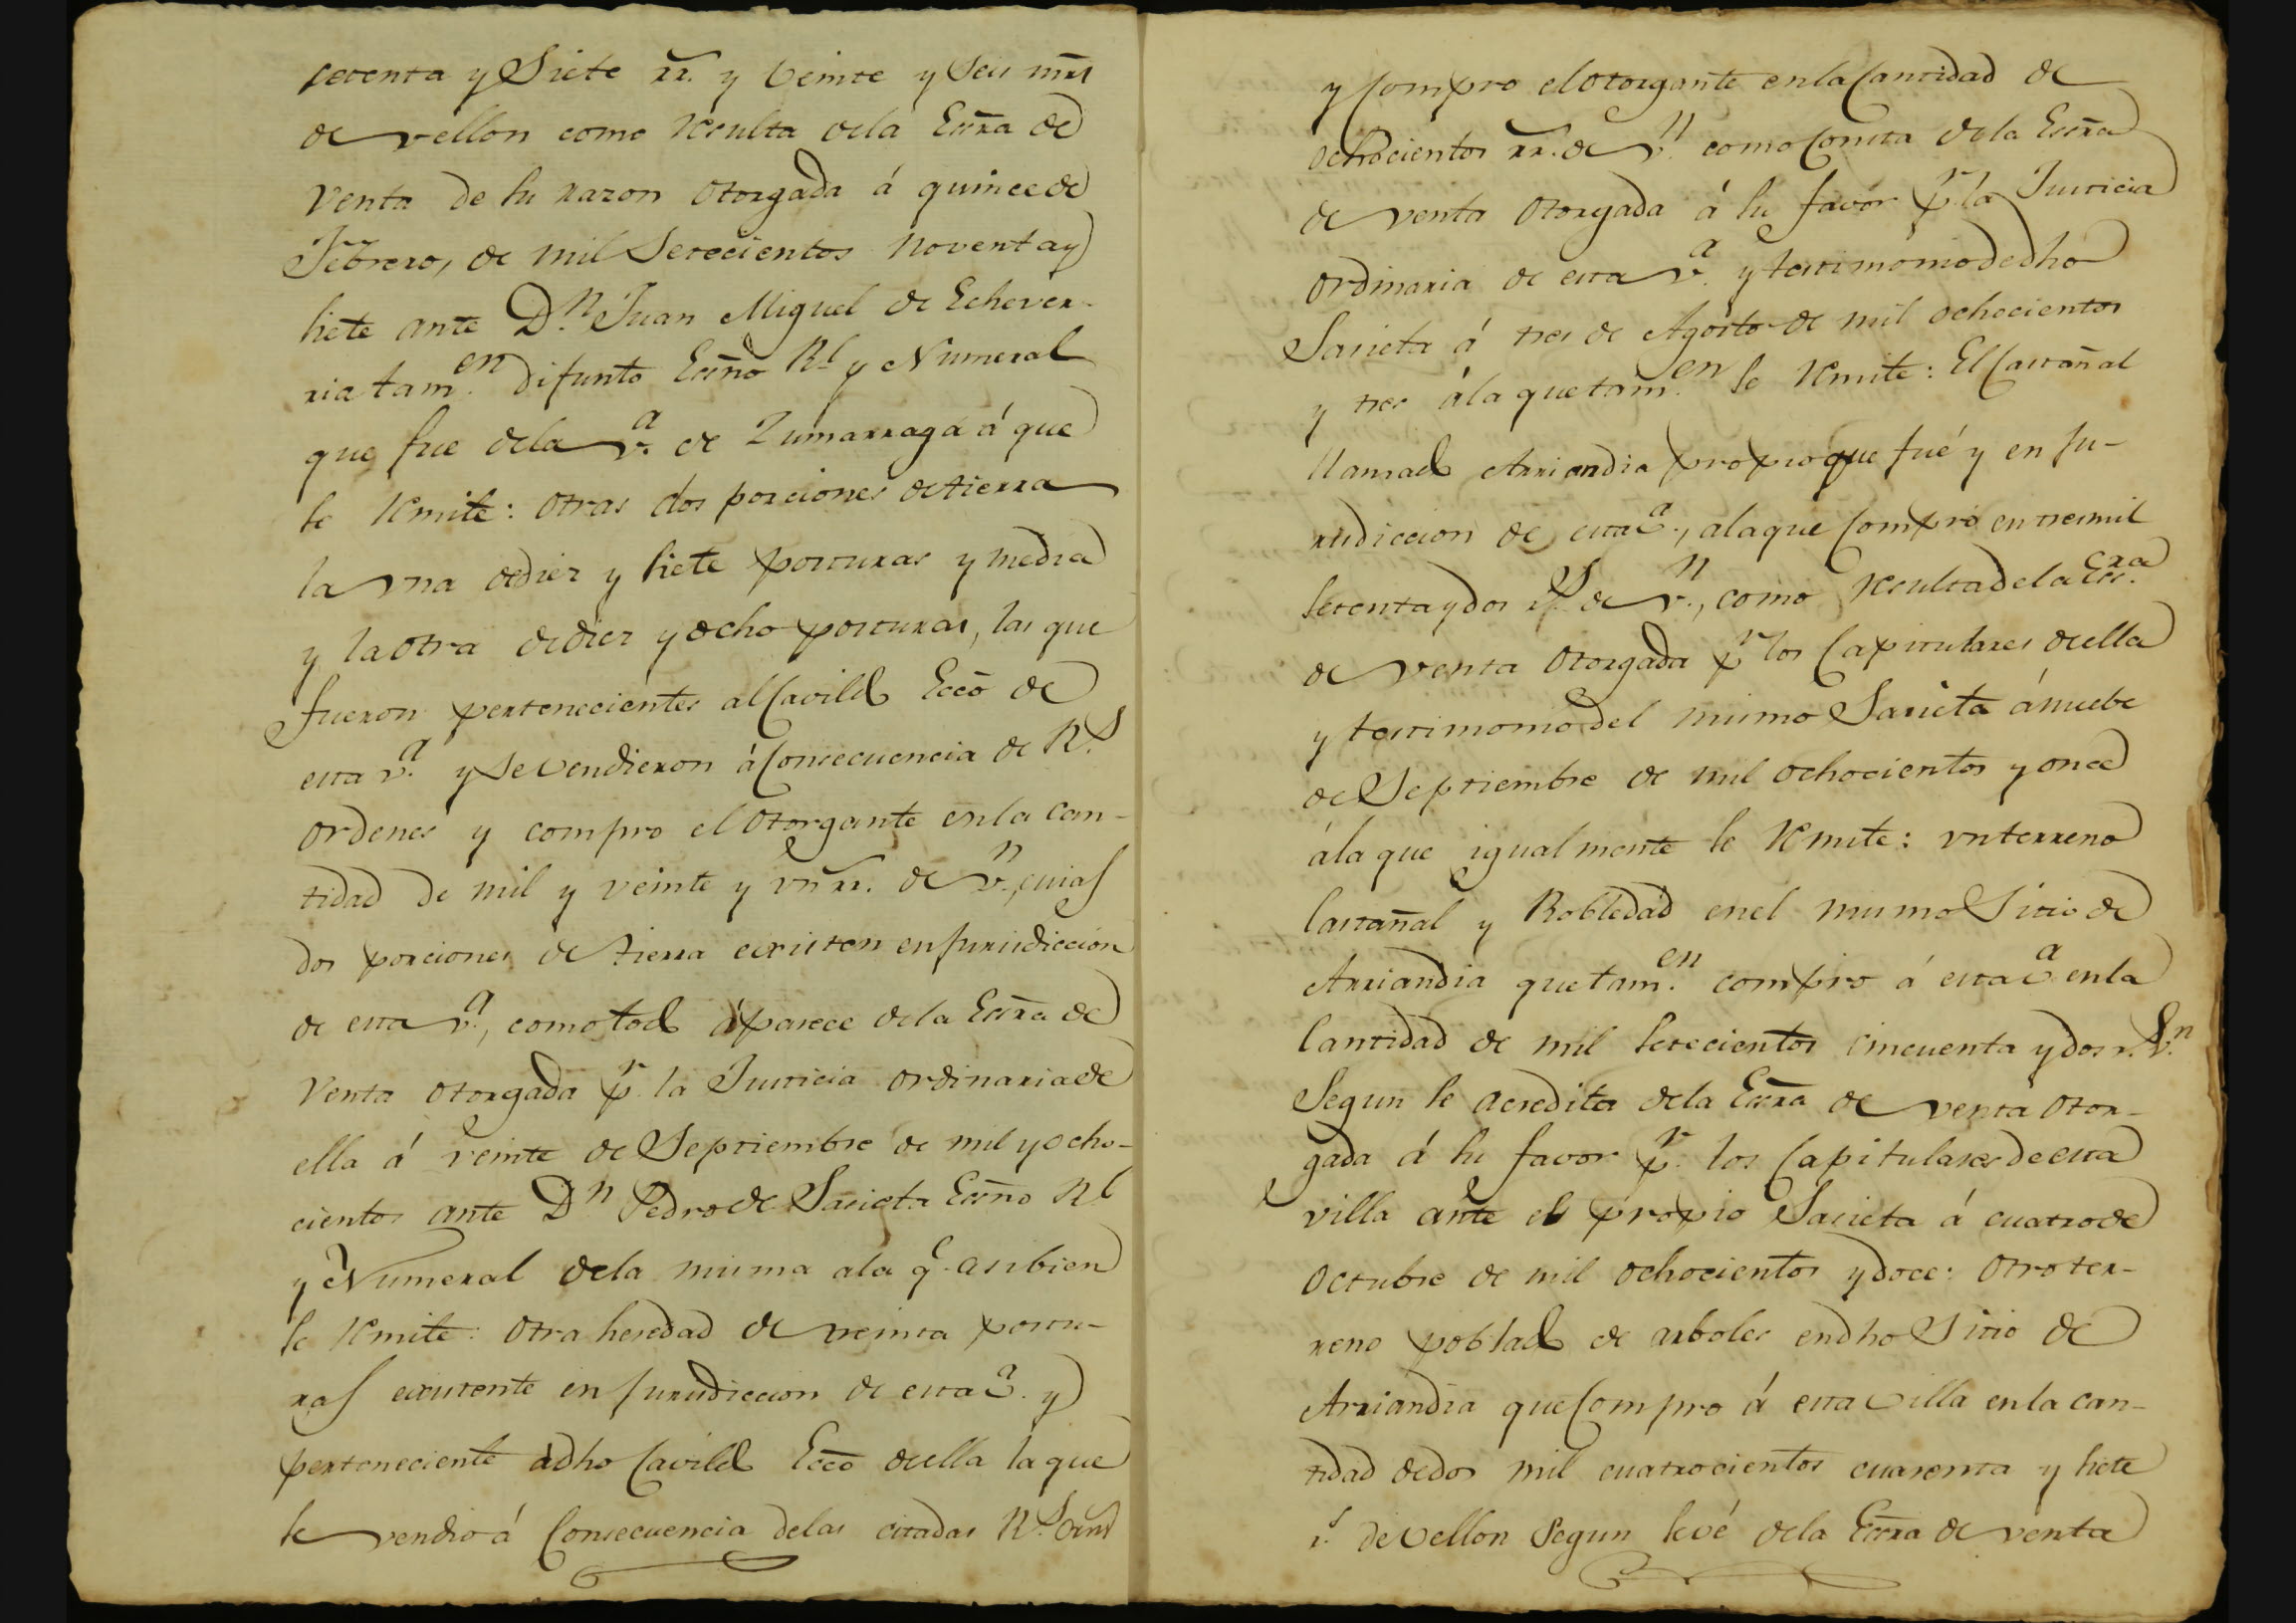 setenta y Siete rr. y veinte y seis mrs
de vellon como resulta dela Escra de
Venta de su razon otorgada á quince de
Febrero, de mil Setecientos noventa y
siete ante Dn. Juan Miguel de Echever-
ria tamen. difunto Esno Rl. y Numeral
que fue dela va. de Zumarraga á que
se remite: otras dos porciones de tierra
la una dediez y siete posturas y media
y la otra dediez y ocho posturas, las que
fueron pertenecientes al Cavildo Ecco de
esta va. y se vendieron á Consecuencia de Rs.
ordenes y compro el otorgante en la can-
tidad de mil y veinte y un rr. de vn., cuias
dos porciones de tierra existen en Jurisdiccion
de esta va., como todo aparece dela Escra de
Venta otorgada pr. la Justicia ordinaria de
ella á veinte de Septiembre de mil y ocho-
cientos ante Dn Pedro de Sasieta Esno Rl
y Numeral dela misma a la qe. asibien
se remite: Otra heredad de treinta postu-
ras existente en Jurisdiccion de esta va. y
perteneciente á dho Cavildo Ecco de ella la que
se vendio á Consecuencia delas citadas Rs. Orns
y Compro el otorgante en la Cantidad de
ochocientos rr. de vn. como Consta dela Escra
de venta otorgada á su favor pr. la Justicia
ordinaria de esta va. y testimonio de dho
Sasieta á tres de Agosto de mil ochocientos
y tres á la que tamen. se remite: El Castañal
llamado Arriandia propio que fué y en Ju-
risdiccion de esta va., a la que Compró en tres mil
setenta y dos rs. de vn., como resulta dela Escra.
de venta otorgada pr. los Capitulares de ella
y testimonio del mismo Sasieta á nuebe
de Septiembre de mil ochocientos y once
á la que igualmente se remite: un terreno
Castañal y Robledad en el mismo Sitio de
Arriandia que tamen. compro á esta va en la
Cantidad de mil setecientos cincuenta y dos rs. vn.
Segun se acredita dela Escra de venta otor-
gada á su favor pr. los Capitulares de esta
villa ante el propio Sasieta á cuatro de
Octubre de mil ochocientos y doce: Otro ter-
reno poblado de arboles en dho Sitio de
Arriandia que Compro á esta villa en la can-
tidad de dos mil cuatrocientos cuarenta y siete
rs. de vellon segun se vé dela Escra de venta